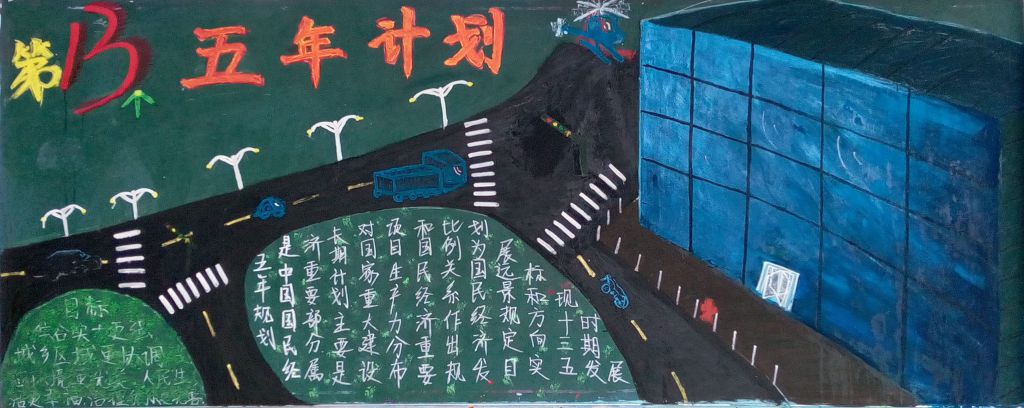 第13个五年计划
五年规划
是中国国民经
济重要部分属
长期计划主要是
对国家重大建设
项目生产力分布
和国民经济重要
比例关系作出规
划为国民经济发
展远景规定目
标和方向实
现十三五
时期发展
目标
综合实力更强
城乡区域更协调
人民生